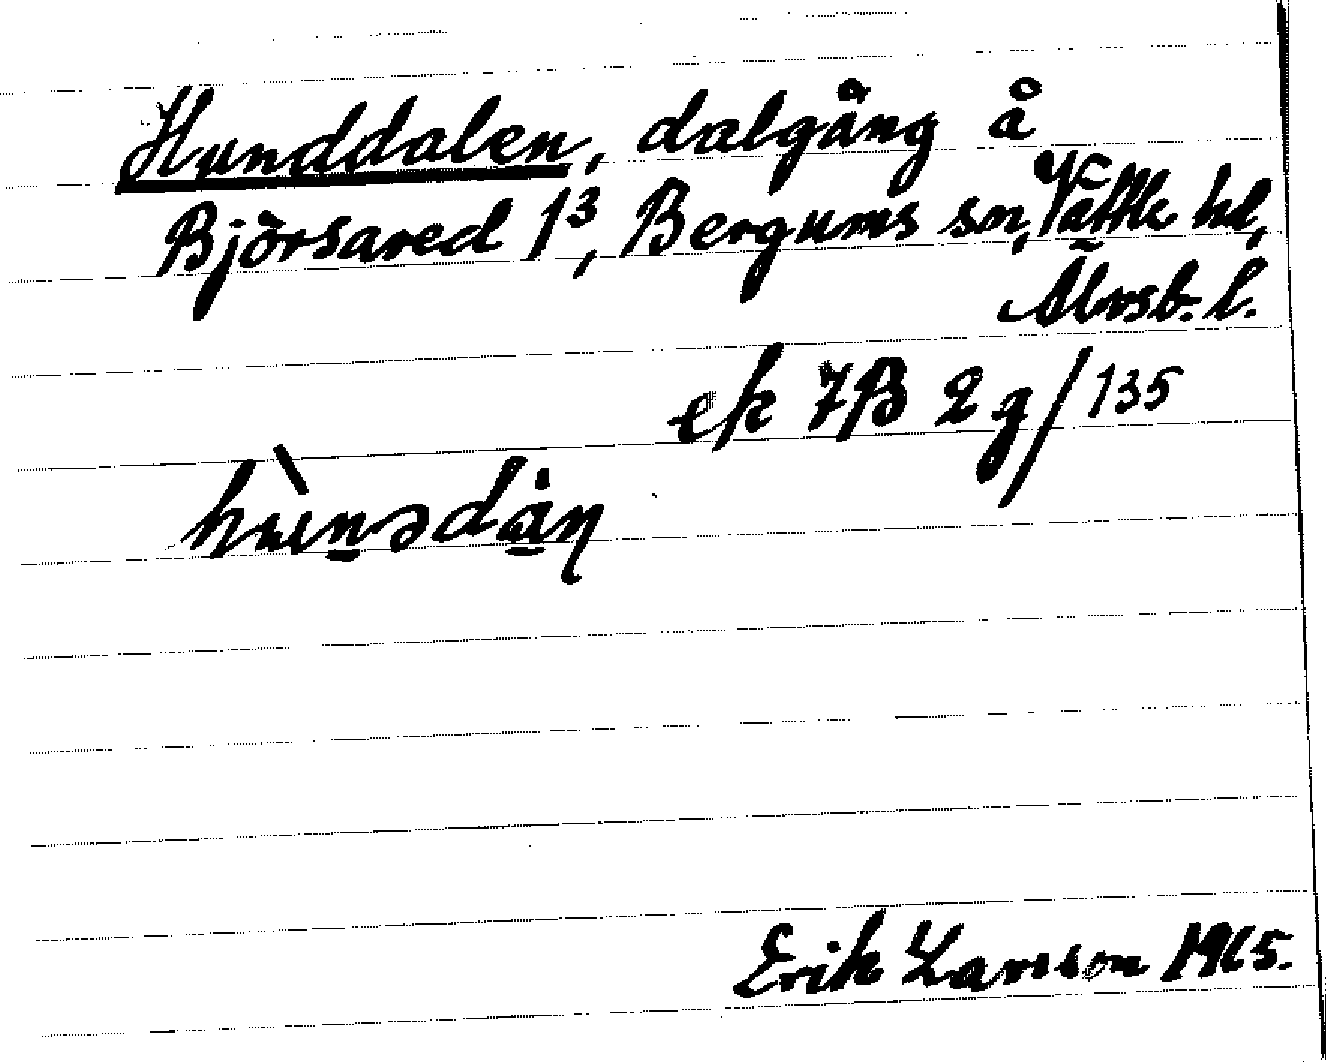 Hunddalen, dalgång å
Björsared 1³, Bergums sn, Vättle hd,
Älvsb. l.
ek 7B 2g/135
hùnədån
Erik Larsson 1965.